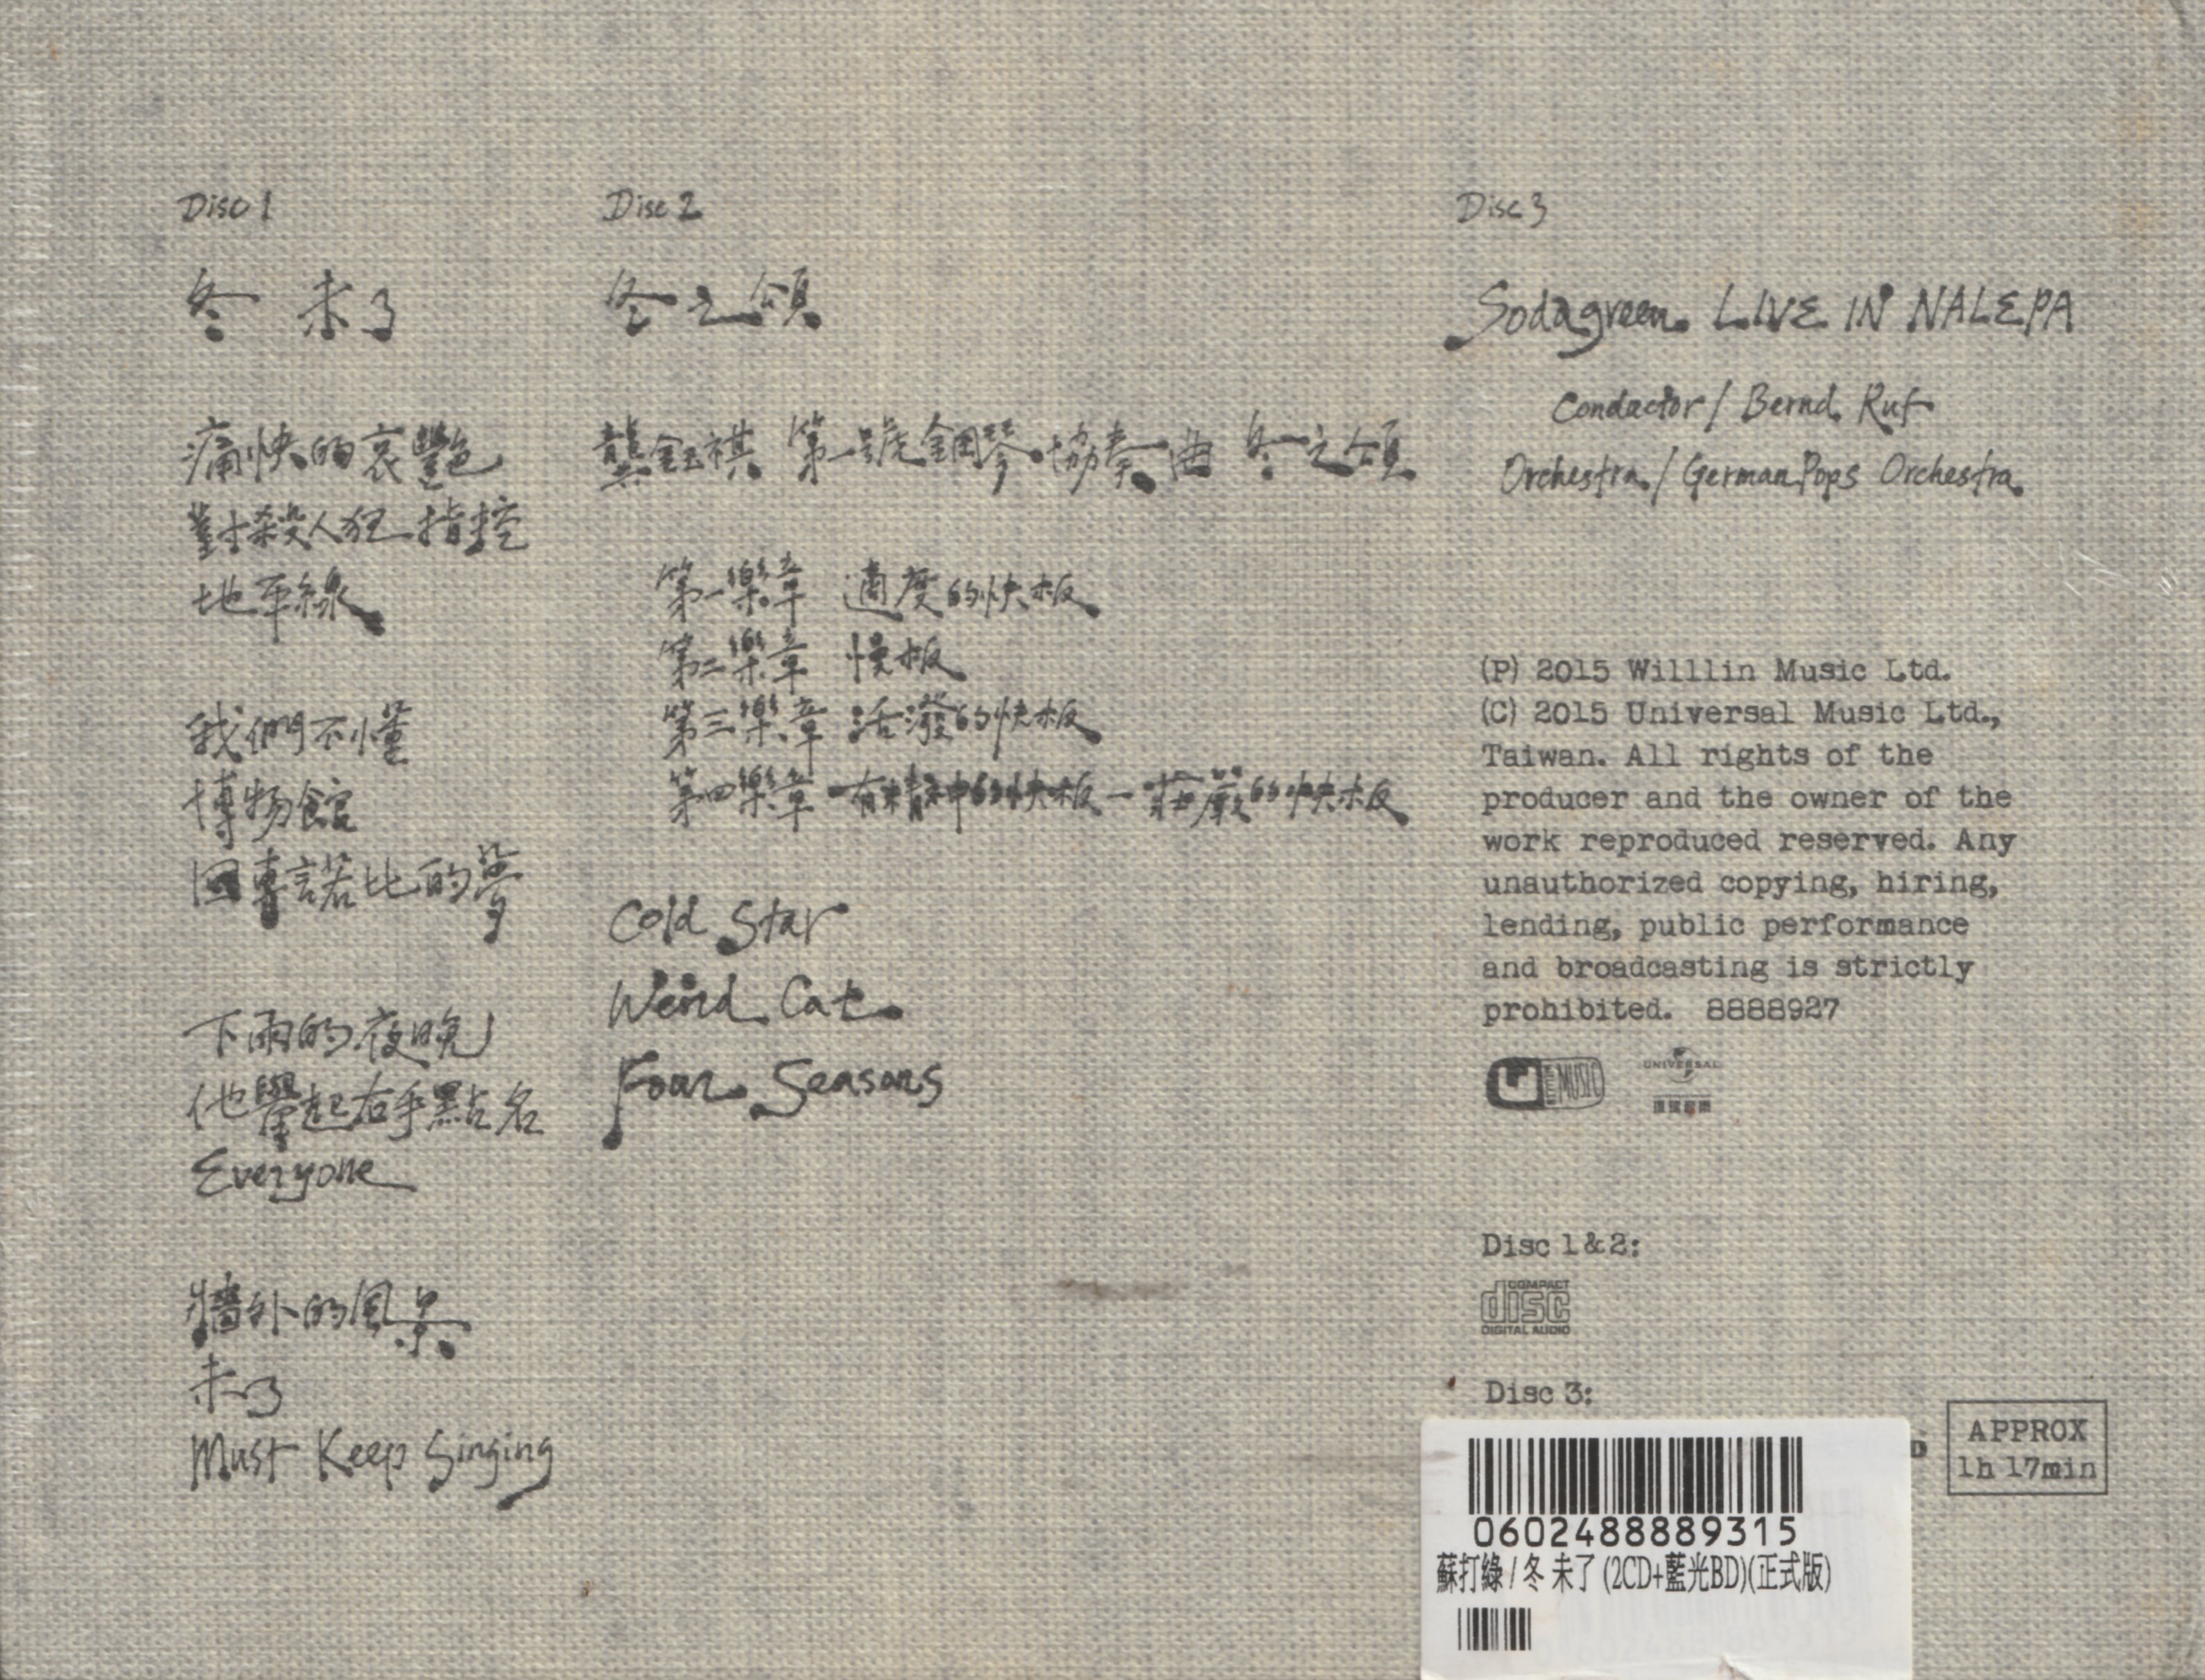 Disc 1
冬 未了
痛快的哀艷
對殺人狂指控
地平線
我們不懂
博物館
回專諾比的夢
下雨的夜晚
他舉起右手點名
Everyone
牆外的風景
未了
Must Keep Singing
Disc 2
冬之頌
龔鈺祺 第一號鋼琴協奏曲 冬之頌
第一樂章 適度的快板
第二樂章 慢板
第三樂章 活潑的快板
第四樂章 有精神的快板－莊嚴的快板
Cold Star
Weird Cat
Four Seasons
Disc 3
Sodagreen LIVE IN NALEPA
Condactor / Bernd Ruf
Orchestra / German Pops Orchestra
(P) 2015 Willlin Music Ltd.
(C) 2015 Universal Music Ltd.,
Taiwan. All rights of the
producer and the owner of the
work reproduced reserved. Any
unauthorized copying, hiring,
lending, public performance
and broadcasting is strictly
prohibited. 8888927
MUSIC
UNIVERSAL
環球音樂
Disc 1&2:
COMPACT
disc
DIGITAL AUDIO
Disc 3:
D
APPROX
1h 17min
0602488889315
蘇打綠 / 冬 未了 (2CD+藍光BD)(正式版)